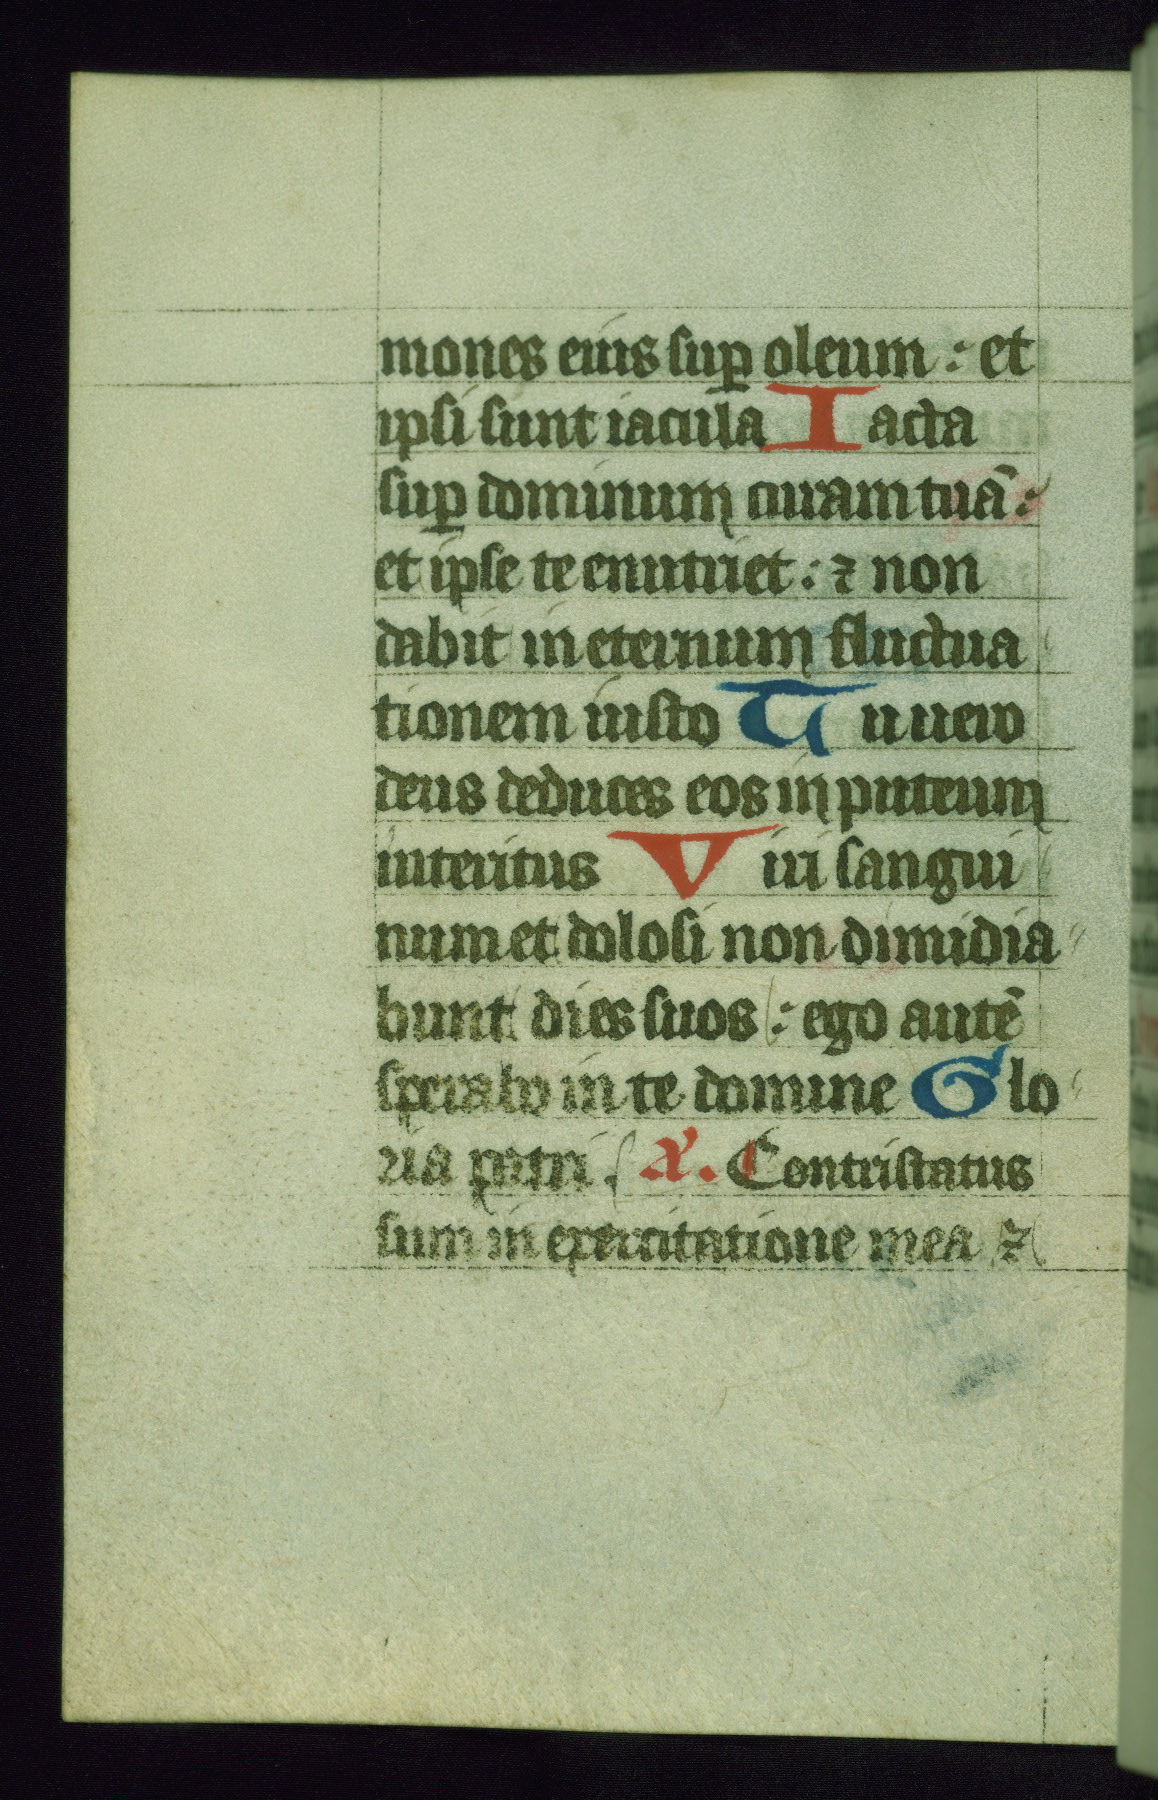 mones eius sup̲ oleum : et
ipsi sunt iacula Iacta
sup̲ dominum curam tuā :
et ipse te enutriet : ⁊ non
dabit in eternum fluctua
tionem iusto Tu uero
deus deduces eos in puteum
interitus Viri sangui
num et dolosi non dimidia
bunt dies suos : ego autē
sperabo in te domine Glo
ria patri . a͛. Contristatus
sum in exercitatione mea ⁊